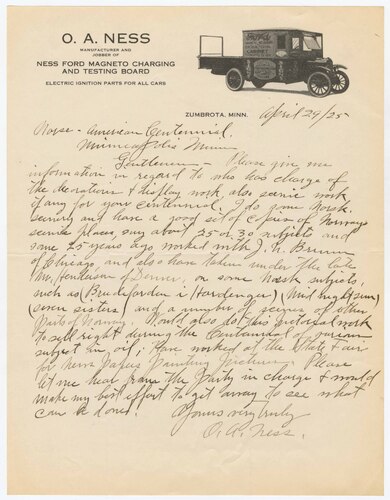 O. A. NESS
MANUFACTURER AND
JOBBER OF
NESS FORD MAGNETO CHARGING
AND TESTING BOARD
ELECTRIC IGNITION PARTS FOR ALL CARS
Ford
ZUMBROTA, MINN. April 29/25
Norse-American Centennial.
Minneapolis Minn
Gentlemen - Please give me
information in regard to who has charge of
the decorations & display work also scenic work
if any for your Centennial. I do some Norsk
scenery and have a good set of copies of Norways
scenic places say about 25 or 30 subjects and
some 25 years ago worked with J. N. Brunn
of Chicago and also have taken under the late
Mr. Henderson of Denver, on some Norsk subjects
such as (Brudefærden i Hardanger)
(seven sisters) and a number of scenes of other
Parts of Norway. Would also do this pictorial work
to sell right during the Centennial of
subject in oil, Have worked at the State Fair
for News Papers Painting Pictures. Please
let me hear from the Party in charge & would
make my best effort to get away to see what
can be done!
Yours very truly
O. A. Ness.